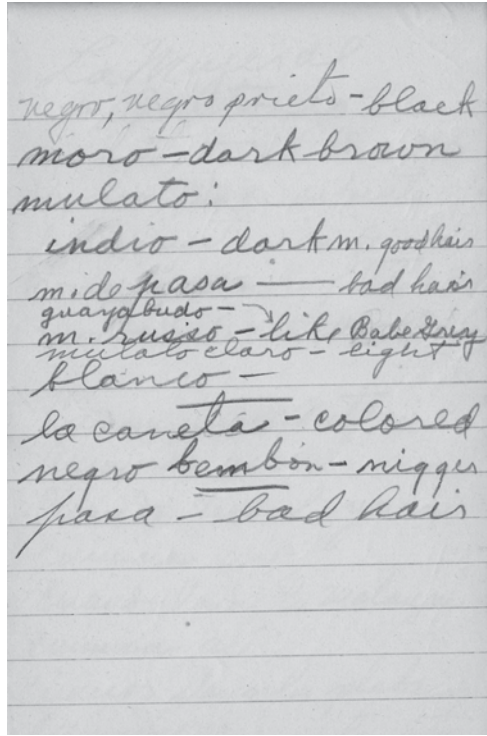 negro, negro prieto - black
moro - dark brown
mulato:
indio - dark m. good hair
m. de pasa — bad hair
guayabudo -
m. russo - like Babe Grey
mulato claro - light
blanco -
la caneta - colored
negro bembón - nigger
pasa - bad hair